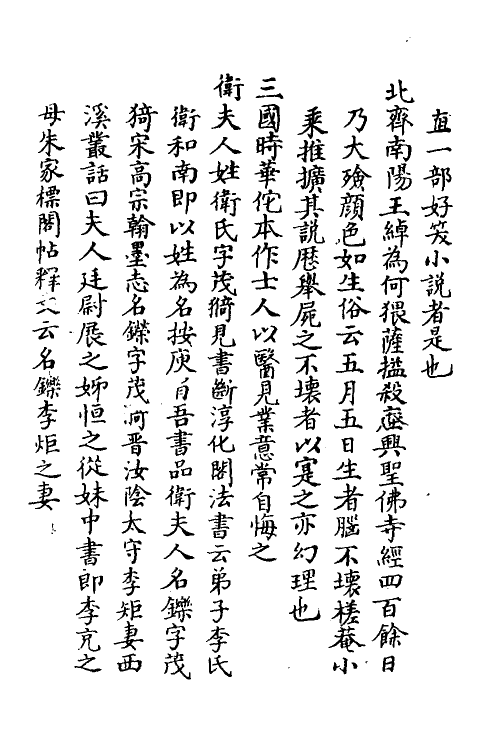 直一部好笑小說者是也
北齊南陽王綽為何猥薩搤殺瘞興聖佛寺經四百餘日
乃大殮顏色如生俗云五月五日生者腦不壞槎菴小
乘推擴其說歷舉屍之不壞者以寔之亦幻理也
三國時華佗本作士人以醫見業意常自悔之
衛夫人姓衛氏字茂猗見書斷淳化閣法書云弟子李氏
衛和南即以姓為名按庾肩吾書品衛夫人名鑠字茂
猗宋高宗翰墨志名鑠字茂漪晉汝陰太守李矩妻西
溪叢話曰夫人廷尉展之姊恒之從妹中書郎李充之
母朱家標閣帖釋文云名鑠李炬之妻